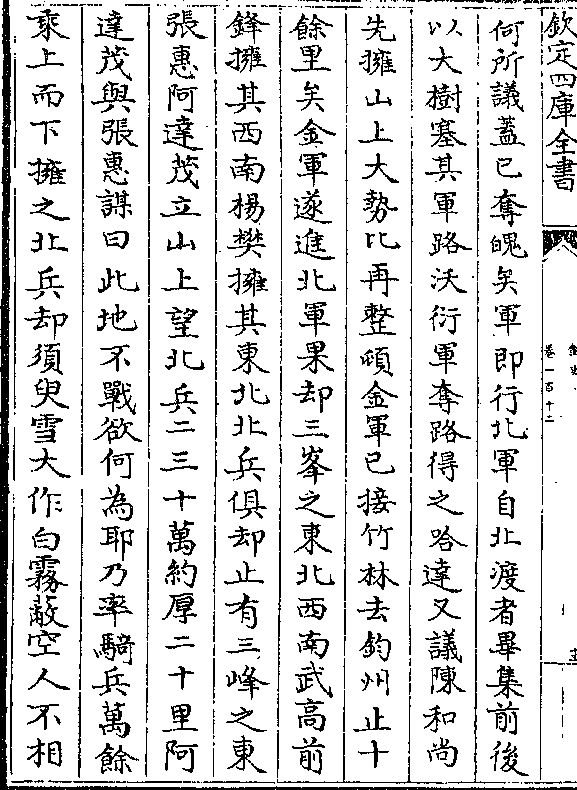 欽定四庫全書
卷一百十二
何所議蓋已奪魄矣軍即行北軍自北渡者畢集前後
以大樹塞其軍路沃衍軍奪路得之哈達又議陳和尚
先擁山上大勢比再整頓金軍已接竹林去鈞州止十
餘里矣金軍遂進北軍果却三峯之東北西南武高前
鋒擁其西南楊樊擁其東北北兵俱却止有三峰之東
張惠阿達茂立山上望北兵二三十萬約厚二十里阿
達茂與張惠謀曰此地不戰欲何為耶乃率騎兵萬餘
乘上而下擁之北兵却須臾雪大作白霧蔽空人不相